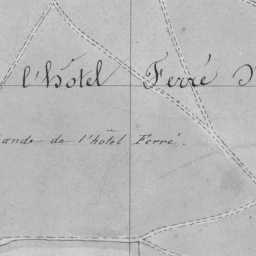 l'hôtel Ferré
de l'hôtel Ferré.